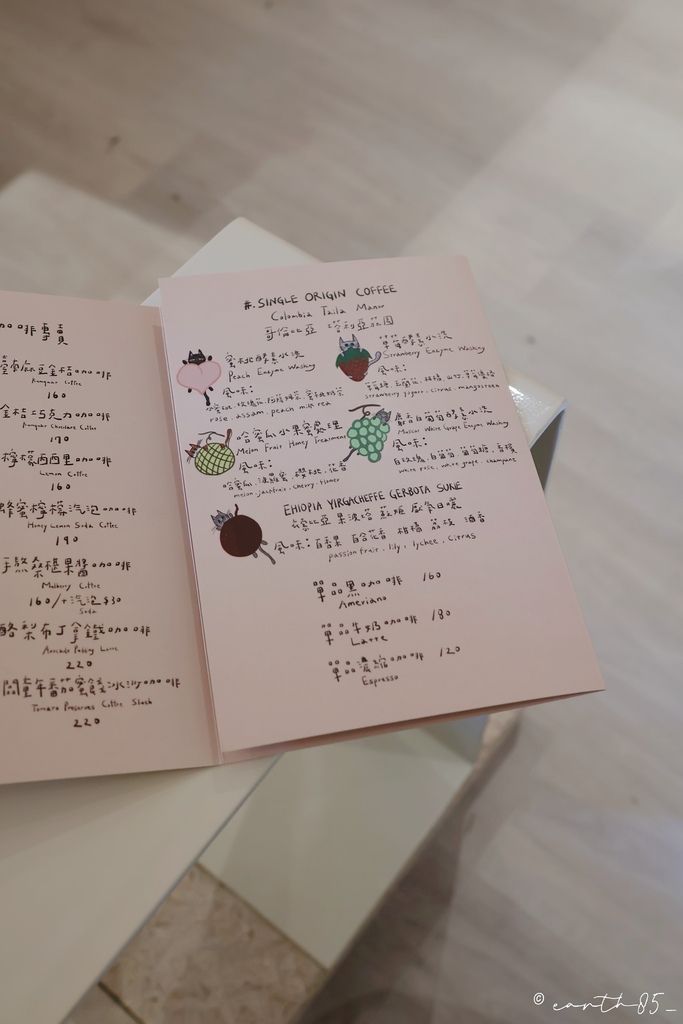 咖啡專賣
金桔咖啡
Kumquat Coffee
160
金桔巧克力咖啡
Kumquat Chocolate Coffee
190
檸檬西西里咖啡
Lemon Coffee
160
蜂蜜檸檬汽泡咖啡
Honey Lemon Soda Coffee
190
手熬桑椹果醬咖啡
Mulberry Coffee
160/+汽泡$30
Soda
酪梨布丁拿鐵咖啡
Avocado Pudding Latte
220
番茄蜜餞冰沙咖啡
Tomato Preserves Coffee Slush
220
#. SINGLE ORIGIN COFFEE
Colombia Taila Manor
哥倫比亞 塔利亞莊園
蜜桃酵素水洗
Peach Enzyme Washing
風味:
水蜜桃、玫瑰花、阿薩姆茶、蜜桃奶茶
rose, assam, peach milk tea
草莓酵素水洗
Strawberry Enzyme Washing
風味:
strawberry yogurt, citrus, mangosteen
哈蜜瓜水果蜜處理
Melon Fruit Honey Treatment
風味:
哈蜜瓜、波羅蜜、櫻桃、花香
melon, jackfruit, cherry, flower
麝香白葡萄酵素水洗
Muscat White Grape Enzyme Washing
風味:
白玫瑰、白葡萄、葡萄糖、香檳
white rose, white grape, champane
EHIOPIA YIRGACHEFFE GERBOTA SUKE
衣索比亞 果波塔 蘇姬 厭氧日曬
風味: 百香果 百合花香 柑橘 荔枝 酒香
passion fruit, lily, lychee, citrus
單品黑咖啡 160
Ameriano
單品牛奶咖啡 180
Latte
單品濃縮咖啡 120
Espresso
© earth85_